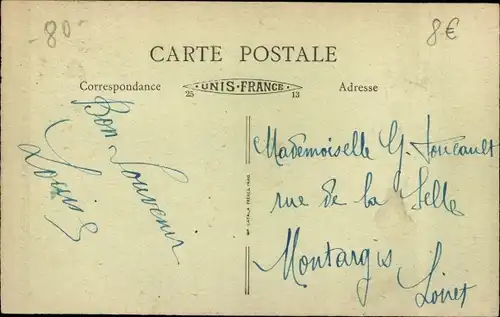 80
8€
CARTE POSTALE
Correspondance
UNIS-FRANCE
Adresse
25
13
Bon Souvenir
Louis
Mademoiselle G. Foucault
rue de la Selle
Montargis
Loiret
IMP. CATALA FRÈRES, PARIS